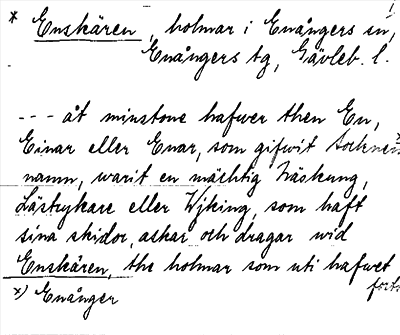 * Enskären, holmar i Enångers sn,
Enångers tg, Gävleb. l.
--- åt minstone hafwer then En,
Einar eller Enar, som gifwit Sochnenx)
namn, warit en mächtig Näskung,
Lästrykare eller Wjking, som haft
sina skidor, askar och dragar wid
Enskären, the holmar som uti hafwet
forts
x) Enånger